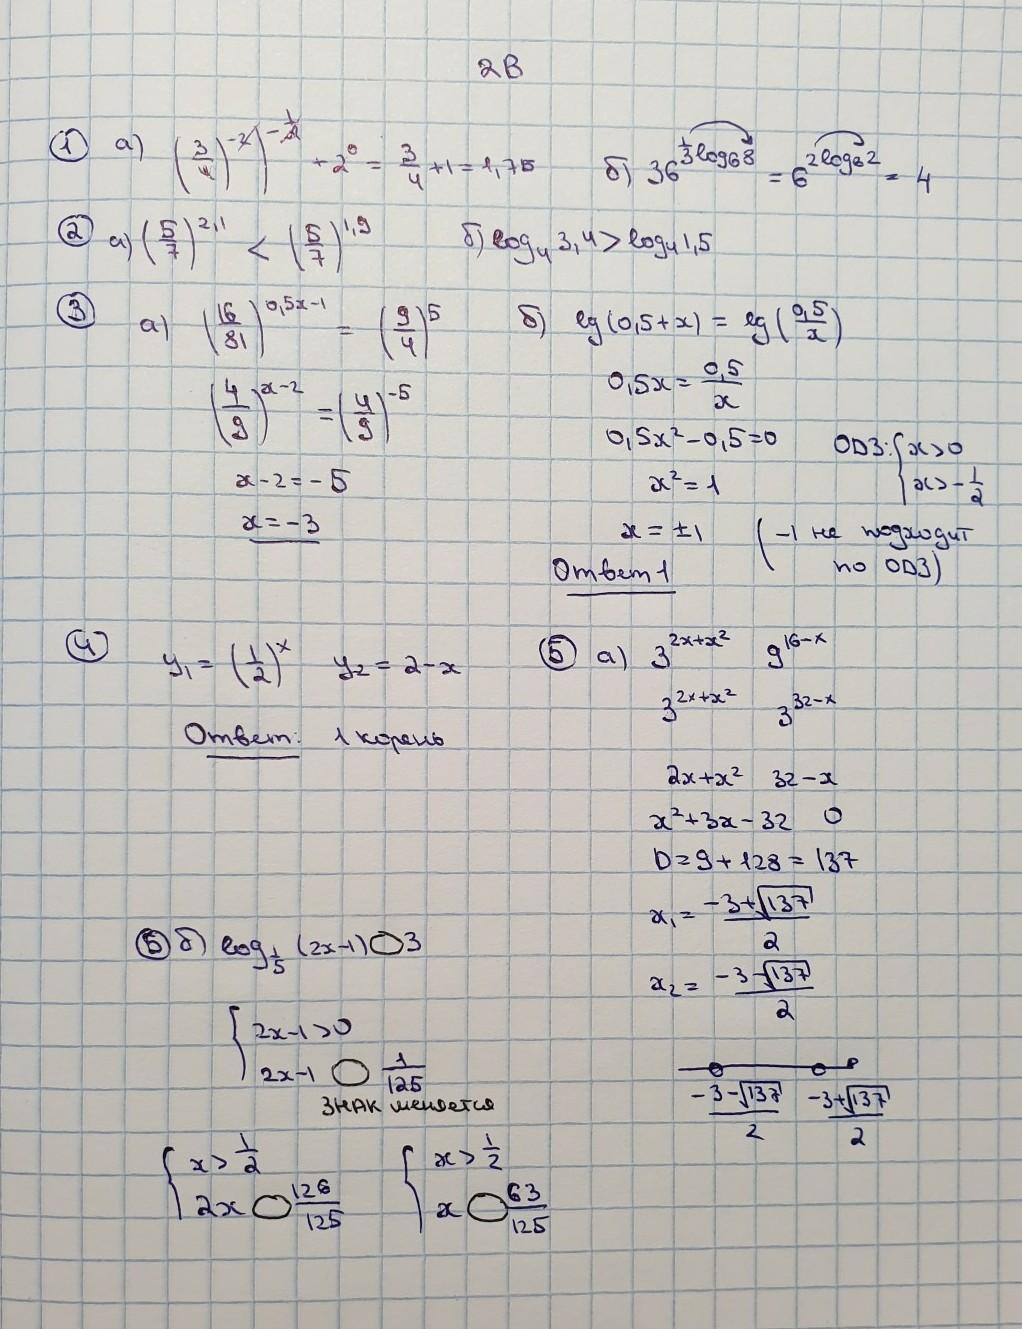 2В
① а) ((3/4)^-2)^-1/2 + 2^0 = 3/4 + 1 = 1,75 б) 36^(1/3 log₆8) = 6^(2log₆2) = 4
② а) (5/7)^2,1 < (5/7)^1,9 б) log₄ 3,4 > log₄ 1,5
③ а) (16/81)^(0,5x-1) = (9/4)^5
(4/9)^(x-2) = (4/9)^-5
x-2 = -5
x = -3
б) lg(0,5+x) = lg(0,5/x)
0,5x = 0,5/x
0,5x² - 0,5 = 0
x² = 1
ОДЗ: { x>0
x> -1/2
x = ±1 (-1 не подходит
по ОДЗ)
Ответ 1
④ y₁ = (1/2)^x y₂ = 2-x
Ответ: 1 корень
⑤ а) 3^(2x+x²) 9^(16-x)
3^(2x+x²) 3^(32-x)
2x+x² 32-x
x²+3x-32 0
D = 9+128 = 137
x₁ = (-3+√137)/2
x₂ = (-3-√137)/2
(-3-√137)/2 (-3+√137)/2
⑤ б) log_1/5 (2x-1) ◯ 3
{ 2x-1>0
2x-1 ◯ 1/125
ЗНАК меняется
{ x> 1/2
2x ◯ 126/125
{ x> 1/2
x ◯ 63/125